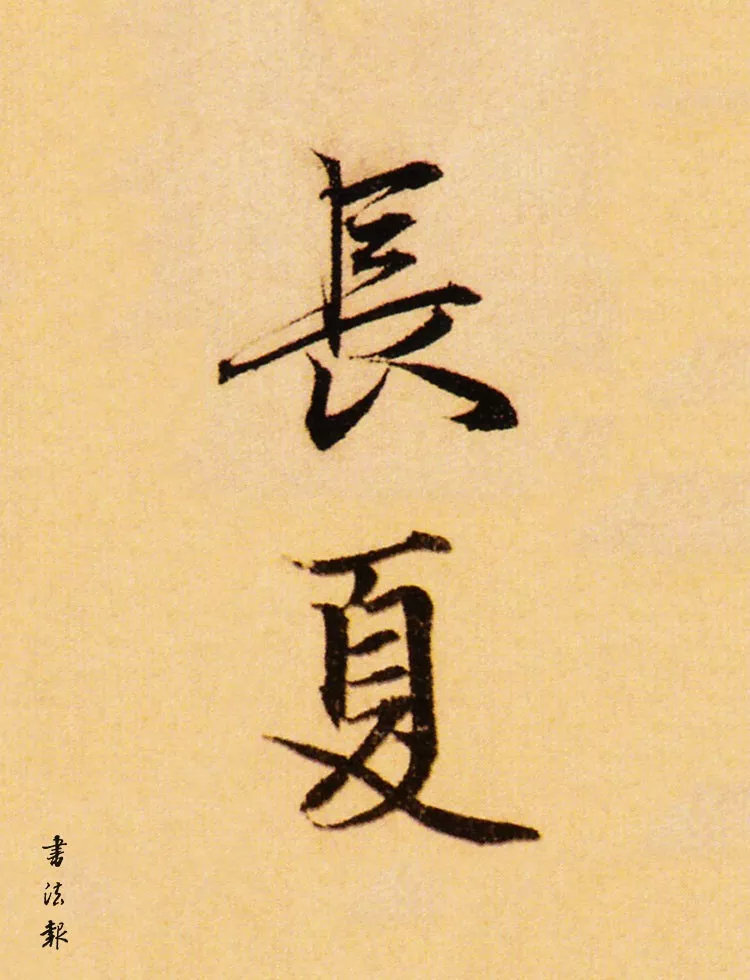 長夏
書法報